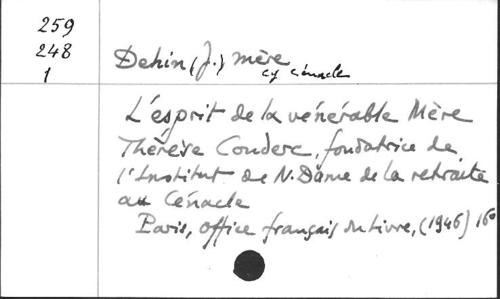 259
248
1
Dehin (J.) mère
cy cénacle
L'ésprit de la vénérable Mère
Thérèse Couderc, fondatrice de
l'Institut de N. Dame de la retraite
au Cénacle
Paris, office français du livre, (1946) 16°